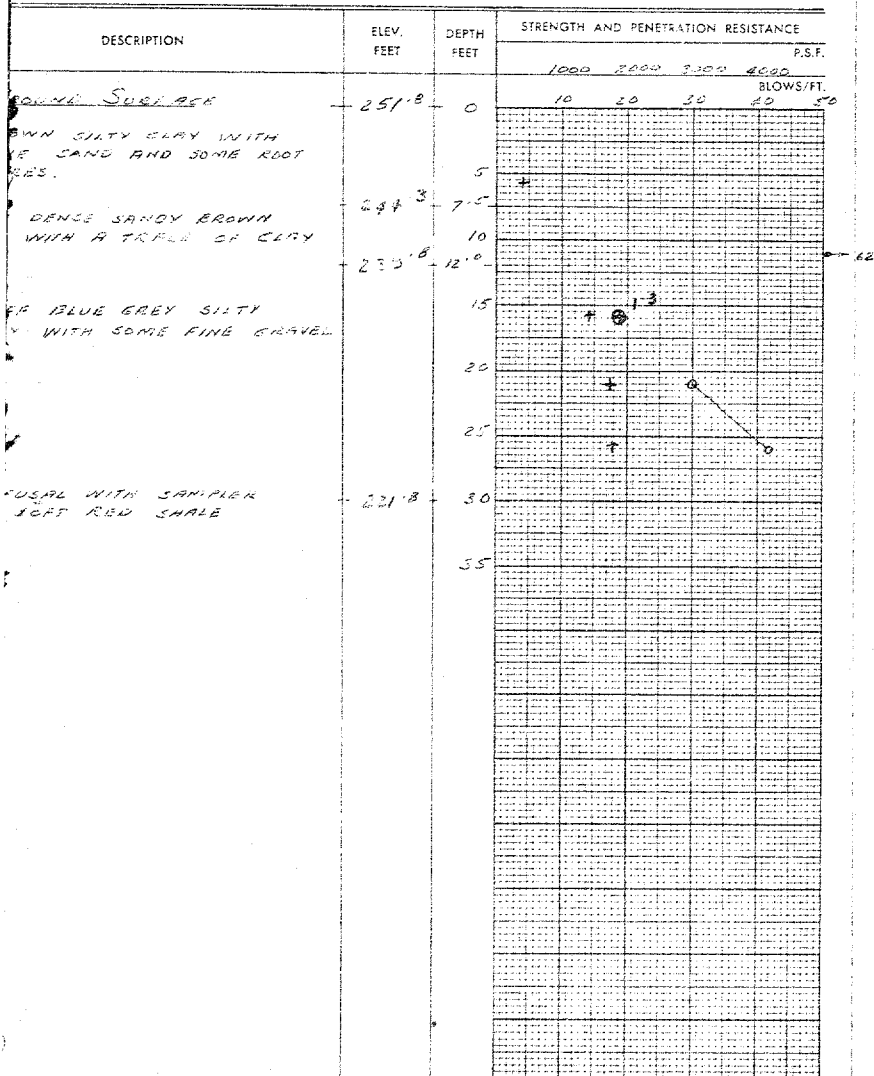 DESCRIPTION
ELEV. FEET
DEPTH FEET
STRENGTH AND PENETRATION RESISTANCE
P.S.F.
1000 2000 3000 4000
BLOWS/FT.
10 20 30 40 50
OUND SURFACE
251.8
0
OWN SILTY CLAY WITH
E SAND AND SOME ROOT
RES.
5
244.3
7.5
DENSE SANDY BROWN
WITH A TRACE OF CLAY
10
239.8
12.0
62
15
1.3
FF BLUE GREY SILTY
Y WITH SOME FINE GRAVEL
20
25
FUSAL WITH SAMPLER
SOFT RED SHALE
221.8
30
35